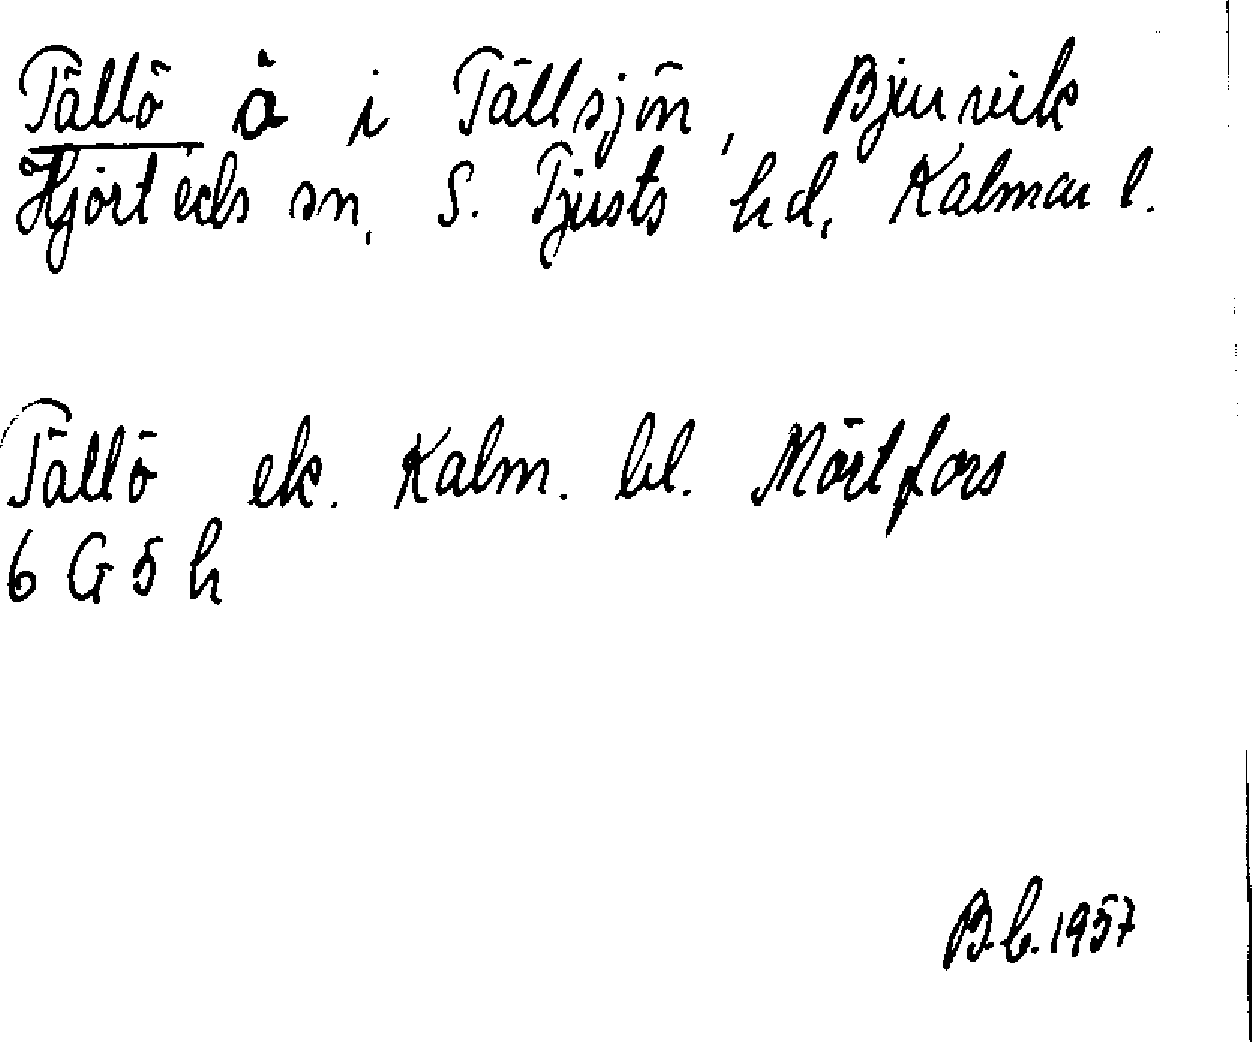 Tällö å i Tällsjön, Bjurvik
Hjorteds sn, S. Tjusts hd, Kalmar l.
Tällö ek. Kalm. bl. Mörtfors
6 G 5 h
B.b. 1957